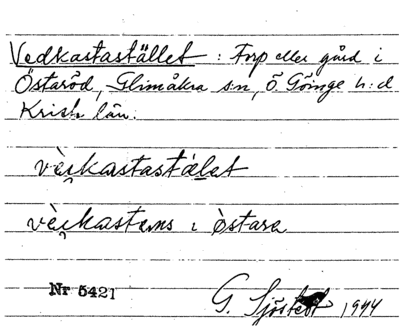 Vedkastastället : Torp eller gård i
Östaröd, Glimåkra s:n, Ö Göinge h:d
Krist. län.
vèi̯kastastä́let
vèi̯kastams i òstara
Nr 5421
G. Sjöstedt 1944